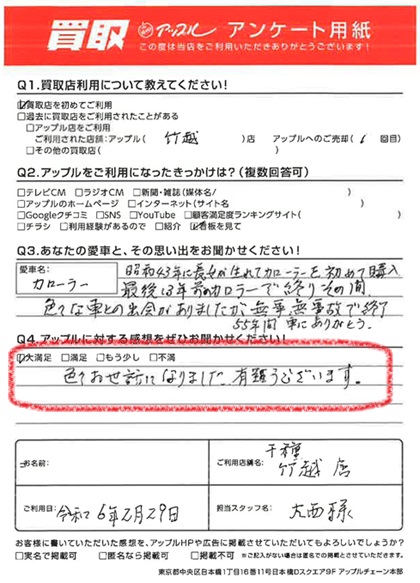 買取 アップル アンケート用紙
この度は当店をご利用いただきありがとうございます!
Q1.買取店利用について教えてください!
☑買取店を初めてご利用
□過去に買取店をご利用されたことがある
□アップル店をご利用
ご利用された店舗:アップル( 竹越 )店 アップルへのご売却( 1 回目)
□その他の買取店( )
Q2.アップルをご利用になったきっかけは?(複数回答可)
□テレビCM □ラジオCM □新聞・雑誌(媒体名/ )
□アップルのホームページ □インターネット(サイト名 )
□Googleクチコミ □SNS □YouTube □顧客満足度ランキングサイト( )
□チラシ □利用経験があるので □紹介 ☑看板を見て
Q3.あなたの愛車と、その思い出をお聞かせください!
愛車名:
カローラー
昭和43年に長女が生れてカローラーを初めて購入
最後は3年前のカローラーで終りその間
色々な車との出会がありましたが無事無事故で終了
55年間 車にありがとう。
Q4.アップルに対する感想をぜひお聞かせください!
☑大満足 □満足 □もう少し □不満
色々お世話になりまして、有難うございます。
お名前:
ご利用店舗名:
千種
竹越店
ご利用日:
令和6年2月29日
担当スタッフ名:
大西様
お客様に書いていただいた感想を、アップルHPや広告に掲載させていただいてもよろしいでしょうか?
□実名で掲載可 □匿名なら掲載可 □掲載不可 ※ご記入がない場合は匿名での掲載とさせていただきます。
東京都中央区日本橋1丁目16番11号日本橋Dスクエア9F アップルチェーン本部